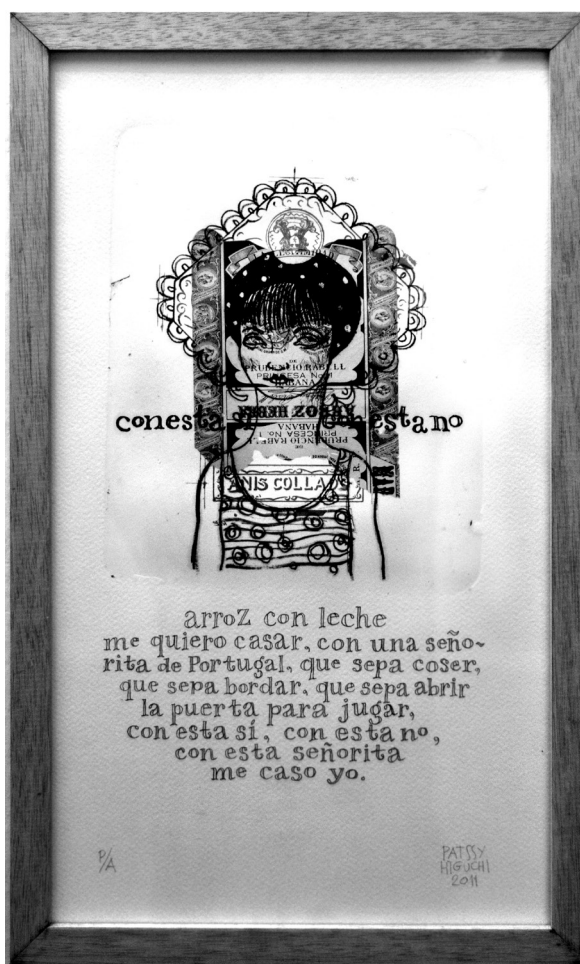 DE
PRUDENCIO RABELL
PRINCESA No. 1
HABANA
conesta
conestano
ARROZ
HABANA
PRINCESA No. 1
PRUDENCIO RABELL
DE
ANIS COLLA
arroz con leche
me quiero casar, con una seño-
rita de Portugal, que sepa coser,
que sepa bordar, que sepa abrir
la puerta para jugar,
con esta sí, con esta no,
con esta señorita
me caso yo.
P/A
PATSSY
HIGUCHI
2011